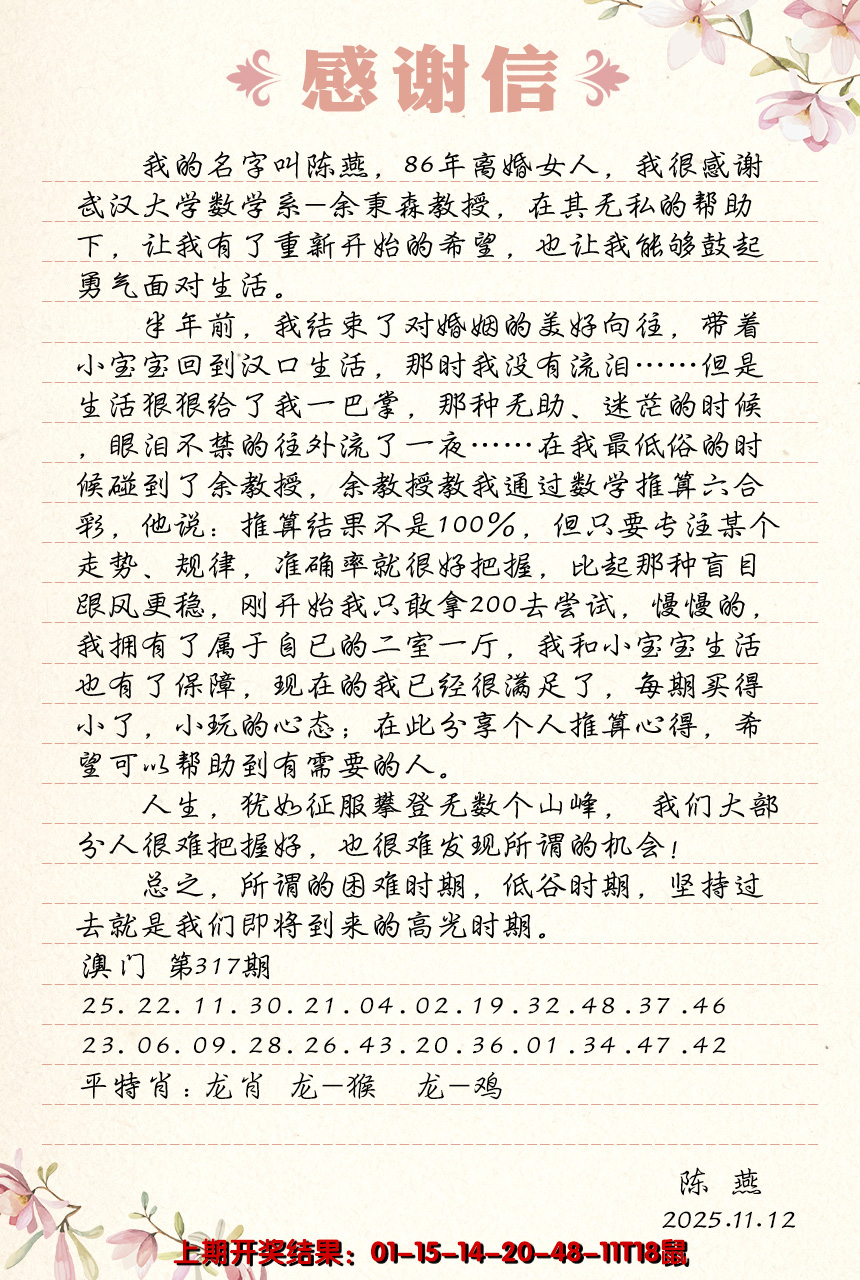 感谢信
我的名字叫陈燕，86年离婚女人，我很感谢
武汉大学数学系—余秉森教授，在其无私的帮助
下，让我有了重新开始的希望，也让我能够鼓起
勇气面对生活。
半年前，我结束了对婚姻的美好向往，带着
小宝宝回到汉口生活，那时我没有流泪……但是
生活狠狠给了我一巴掌，那种无助、迷茫的时候
，眼泪不禁的往外流了一夜……在我最低俗的时
候碰到了余教授，余教授教我通过数学推算六合
彩，他说：推算结果不是100%，但只要专注某个
走势、规律，准确率就很好把握，比起那种盲目
跟风更稳，刚开始我只敢拿200去尝试，慢慢的，
我拥有了属于自已的二室一厅，我和小宝宝生活
也有了保障，现在的我已经很满足了，每期买得
小了，小玩的心态；在此分享个人推算心得，希
望可以帮助到有需要的人。
人生，犹如征服攀登无数个山峰， 我们大部
分人很难把握好，也很难发现所谓的机会！
总之，所谓的困难时期，低谷时期，坚持过
去就是我们即将到来的高光时期。
澳门 第317期
25.22.11.30.21.04.02.19.32.48.37.46
23.06.09.28.26.43.20.36.01.34.47.42
平特肖：龙肖 龙—猴 龙—鸡
陈 燕
2025.11.12
上期开奖结果：01-15-14-20-48-11T18鼠